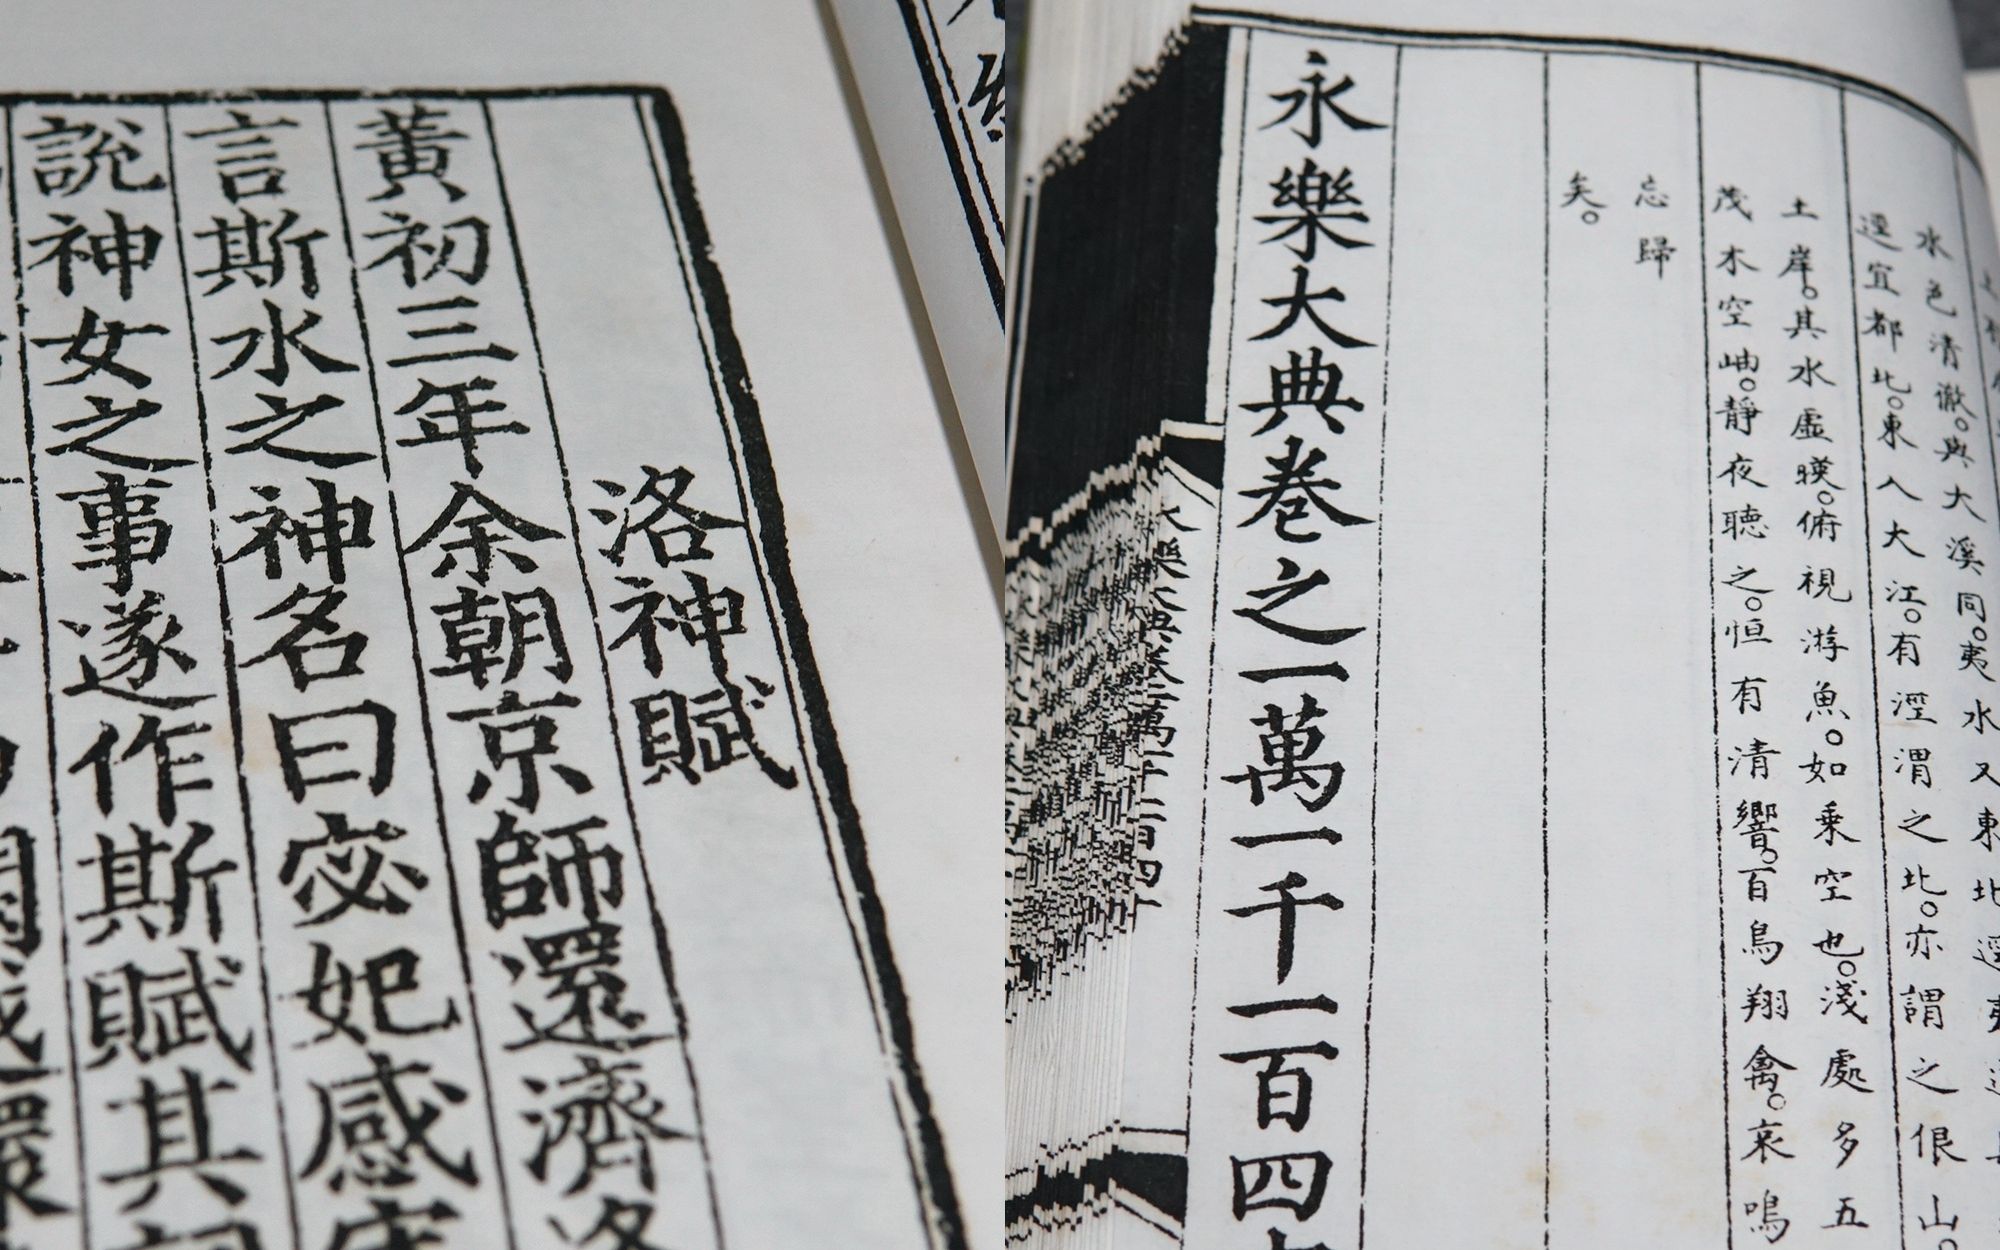 洛神賦
黃初三年余朝京師還濟洛
言斯水之神名曰宓妃感宋
說神女之事遂作斯賦其詞
水色清澈。與大溪同。夷水又東北逕夷
逕宜都北。東入大江。有涇渭之比。亦謂之佷山。
土岸。其水虛暎。俯視游魚。如乘空也。淺處多五
茂木空岫。靜夜聽之。恒有清響。百鳥翔禽。哀鳴
忘歸
矣。
永樂大典卷之一萬一千一百四